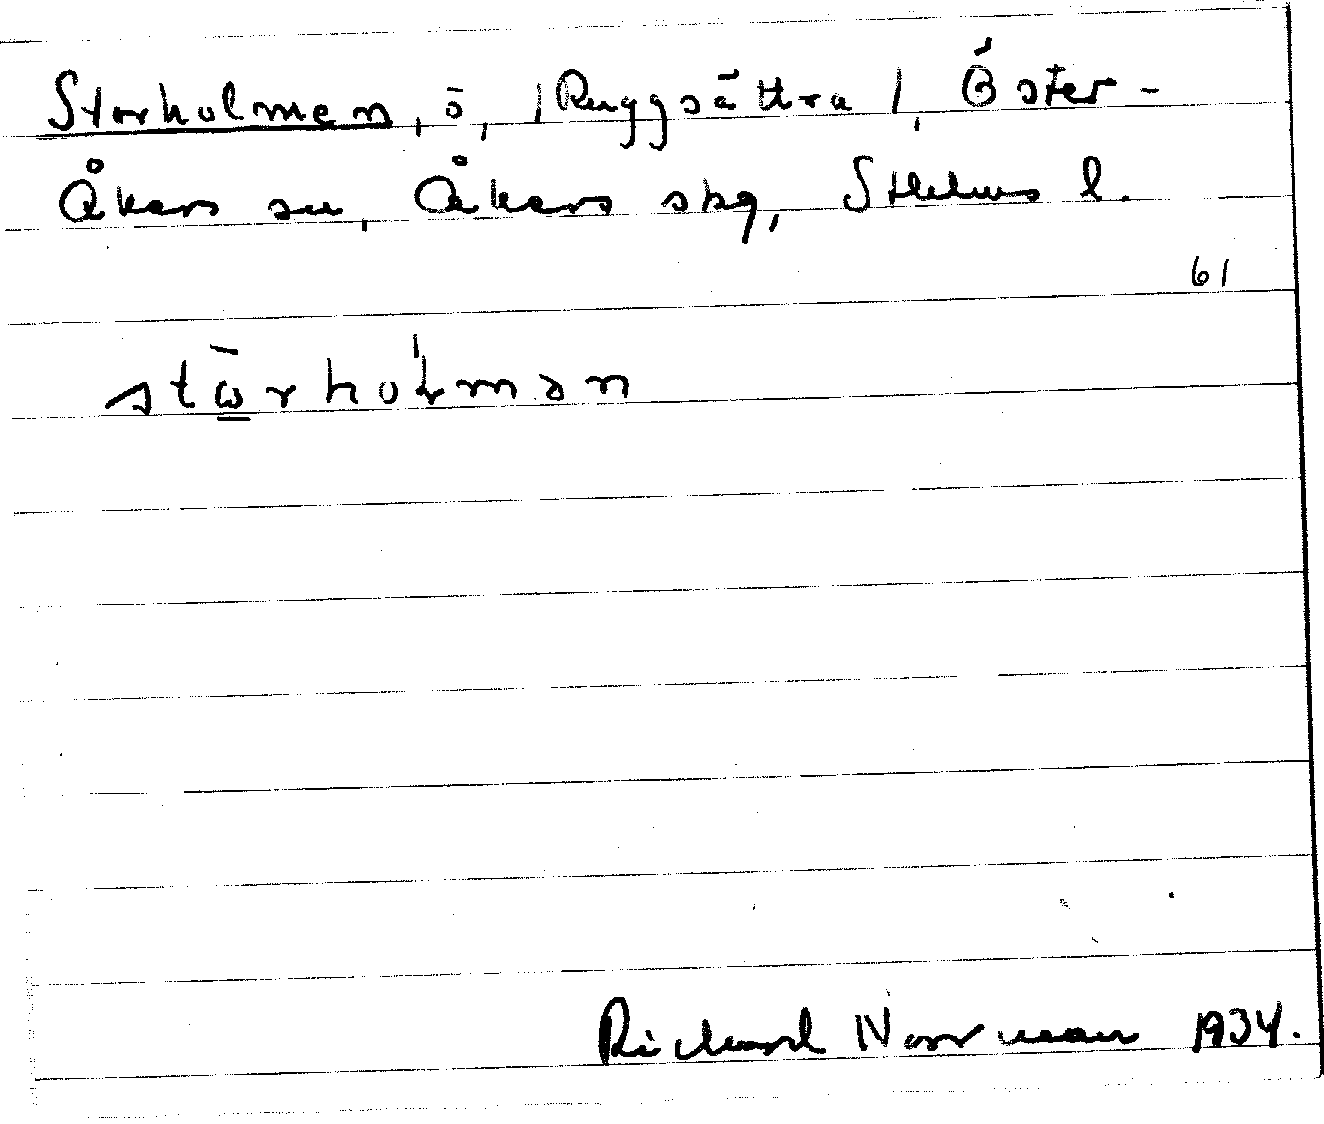 Storholmen, ö, /Ruggsättra/, Öster-
Åkers sn, Åkers skg, Sthlms l.
61
stω̄rhoʹlmən
Richard Norrman 1934.